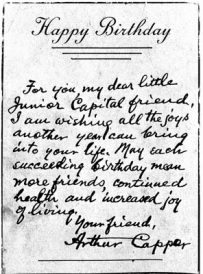 Happy Birthday
For you my dear little
Junior Capital friend,
I am wishing all the joys
another year can bring
into your life. May each
succeeding birthday mean
more friends, continued
health and increased joy
of living.
Your friend,
Arthur Capper